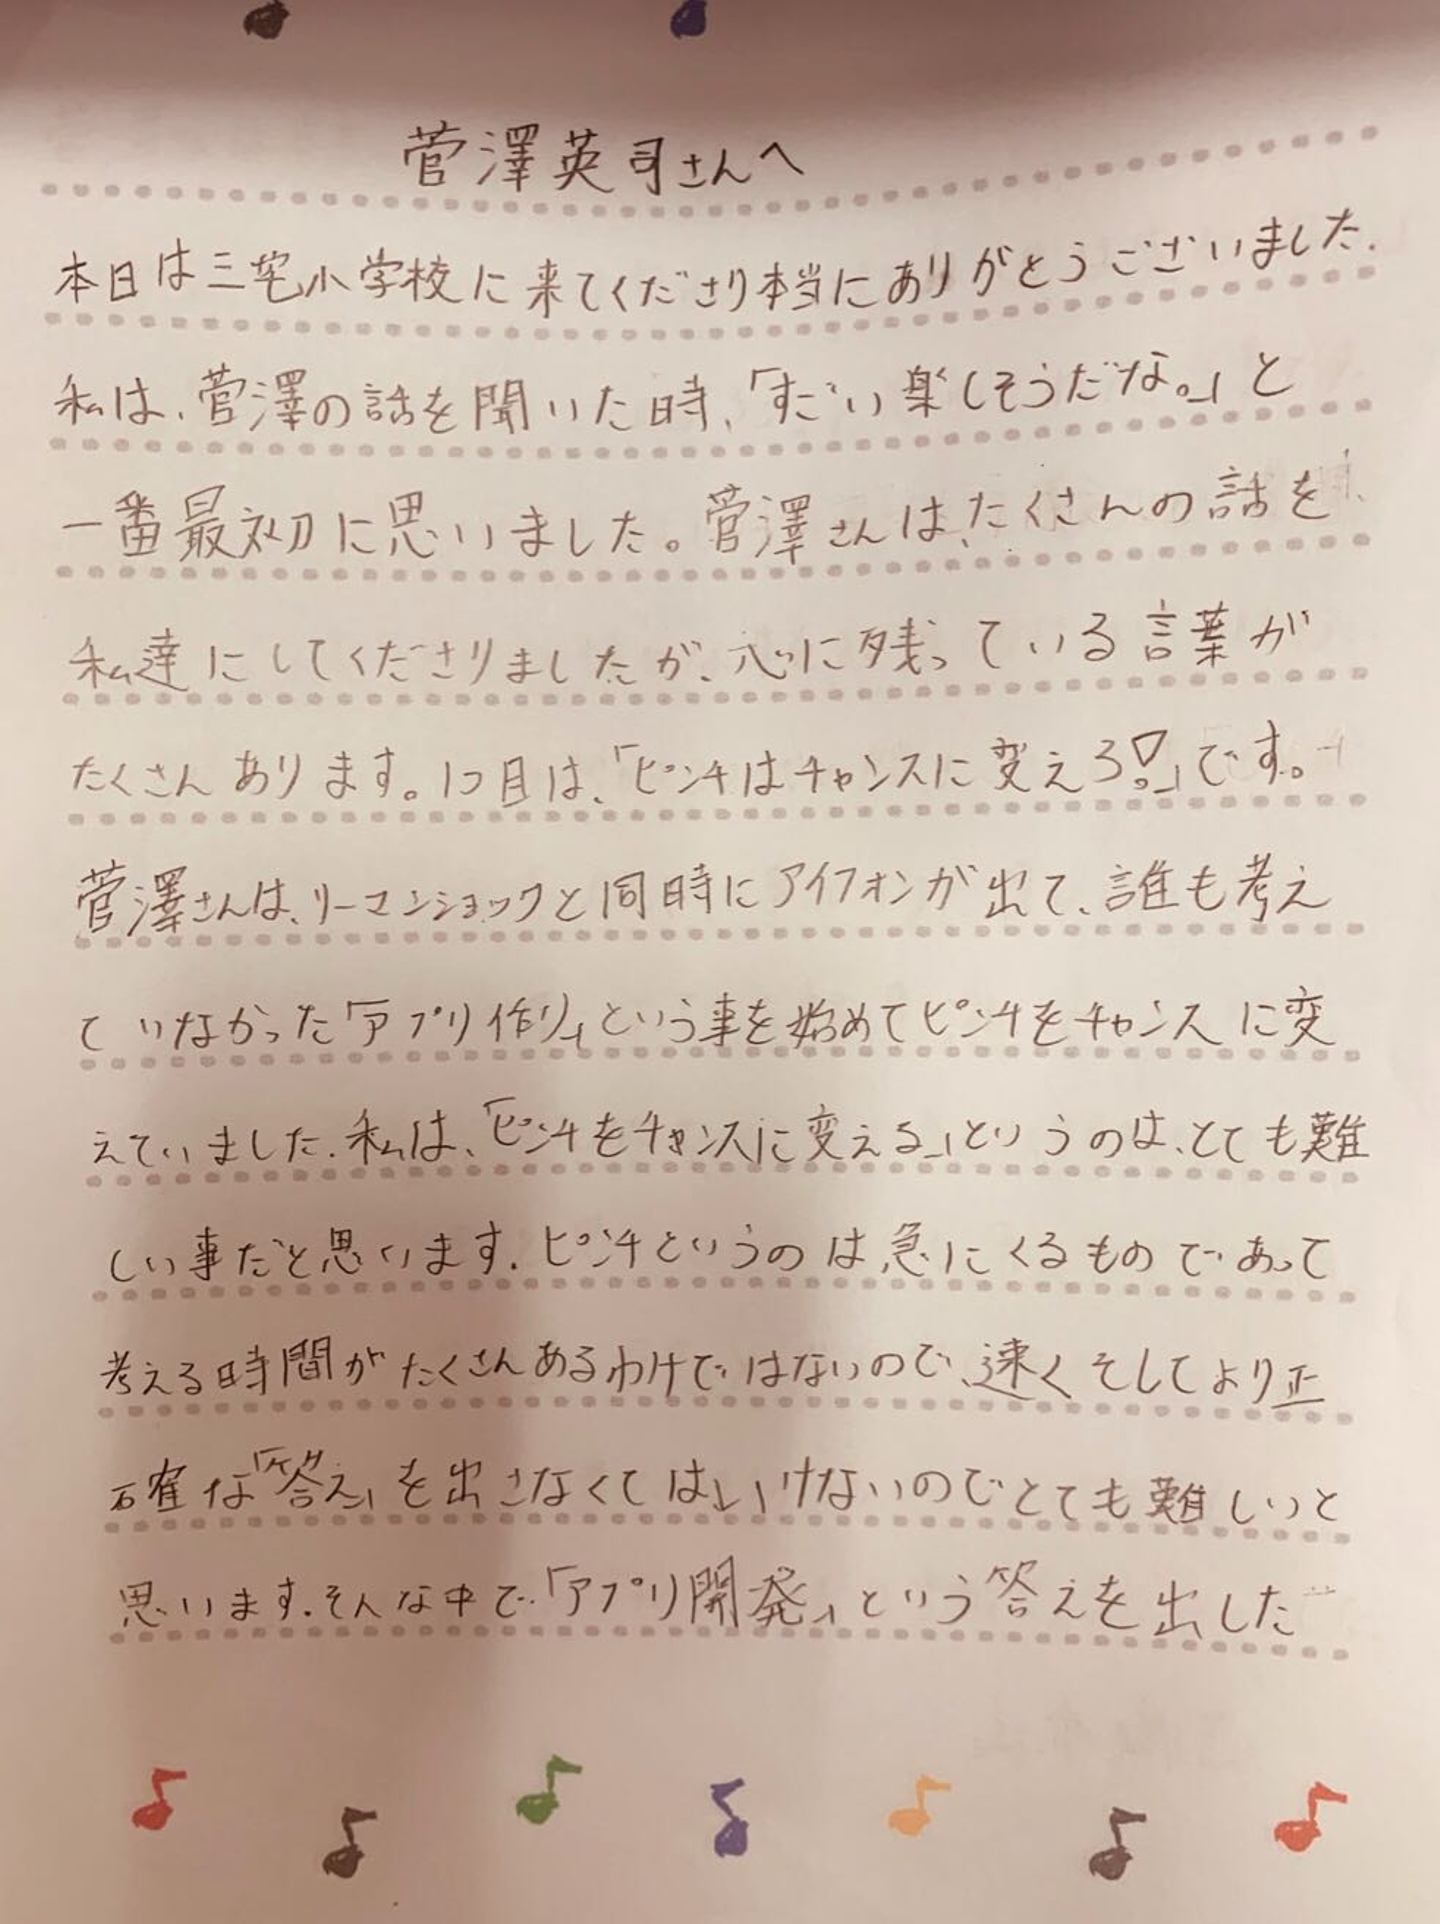 菅澤英司さんへ
本日は三宅小学校に来てくださり本当にありがとうございました.
私は、菅澤の話を聞いた時、「すごい楽しそうだな。」と
一番最初に思いました。菅澤さんは、たくさんの話を
私達にしてくださりましたが、心に残っている言葉が
たくさんあります。1つ目は、「ピンチはチャンスに変えろ!。」です。
菅澤さんは、リーマンショックと同時にアイフォンが出て、誰も考え
ていなかった「アプリ作り」という事を始めてピンチをチャンスに変
えていました.私は、「ピンチをチャンスに変える」というのは、とても難
しい事だと思います.ピンチというのは急にくるものであって
考える時間がたくさんあるわけではないので、速くそしてより正
確な「答え」を出さなくてはいけないのでとても難しいと
思います.そんな中で「アプリ開発」という答えを出した